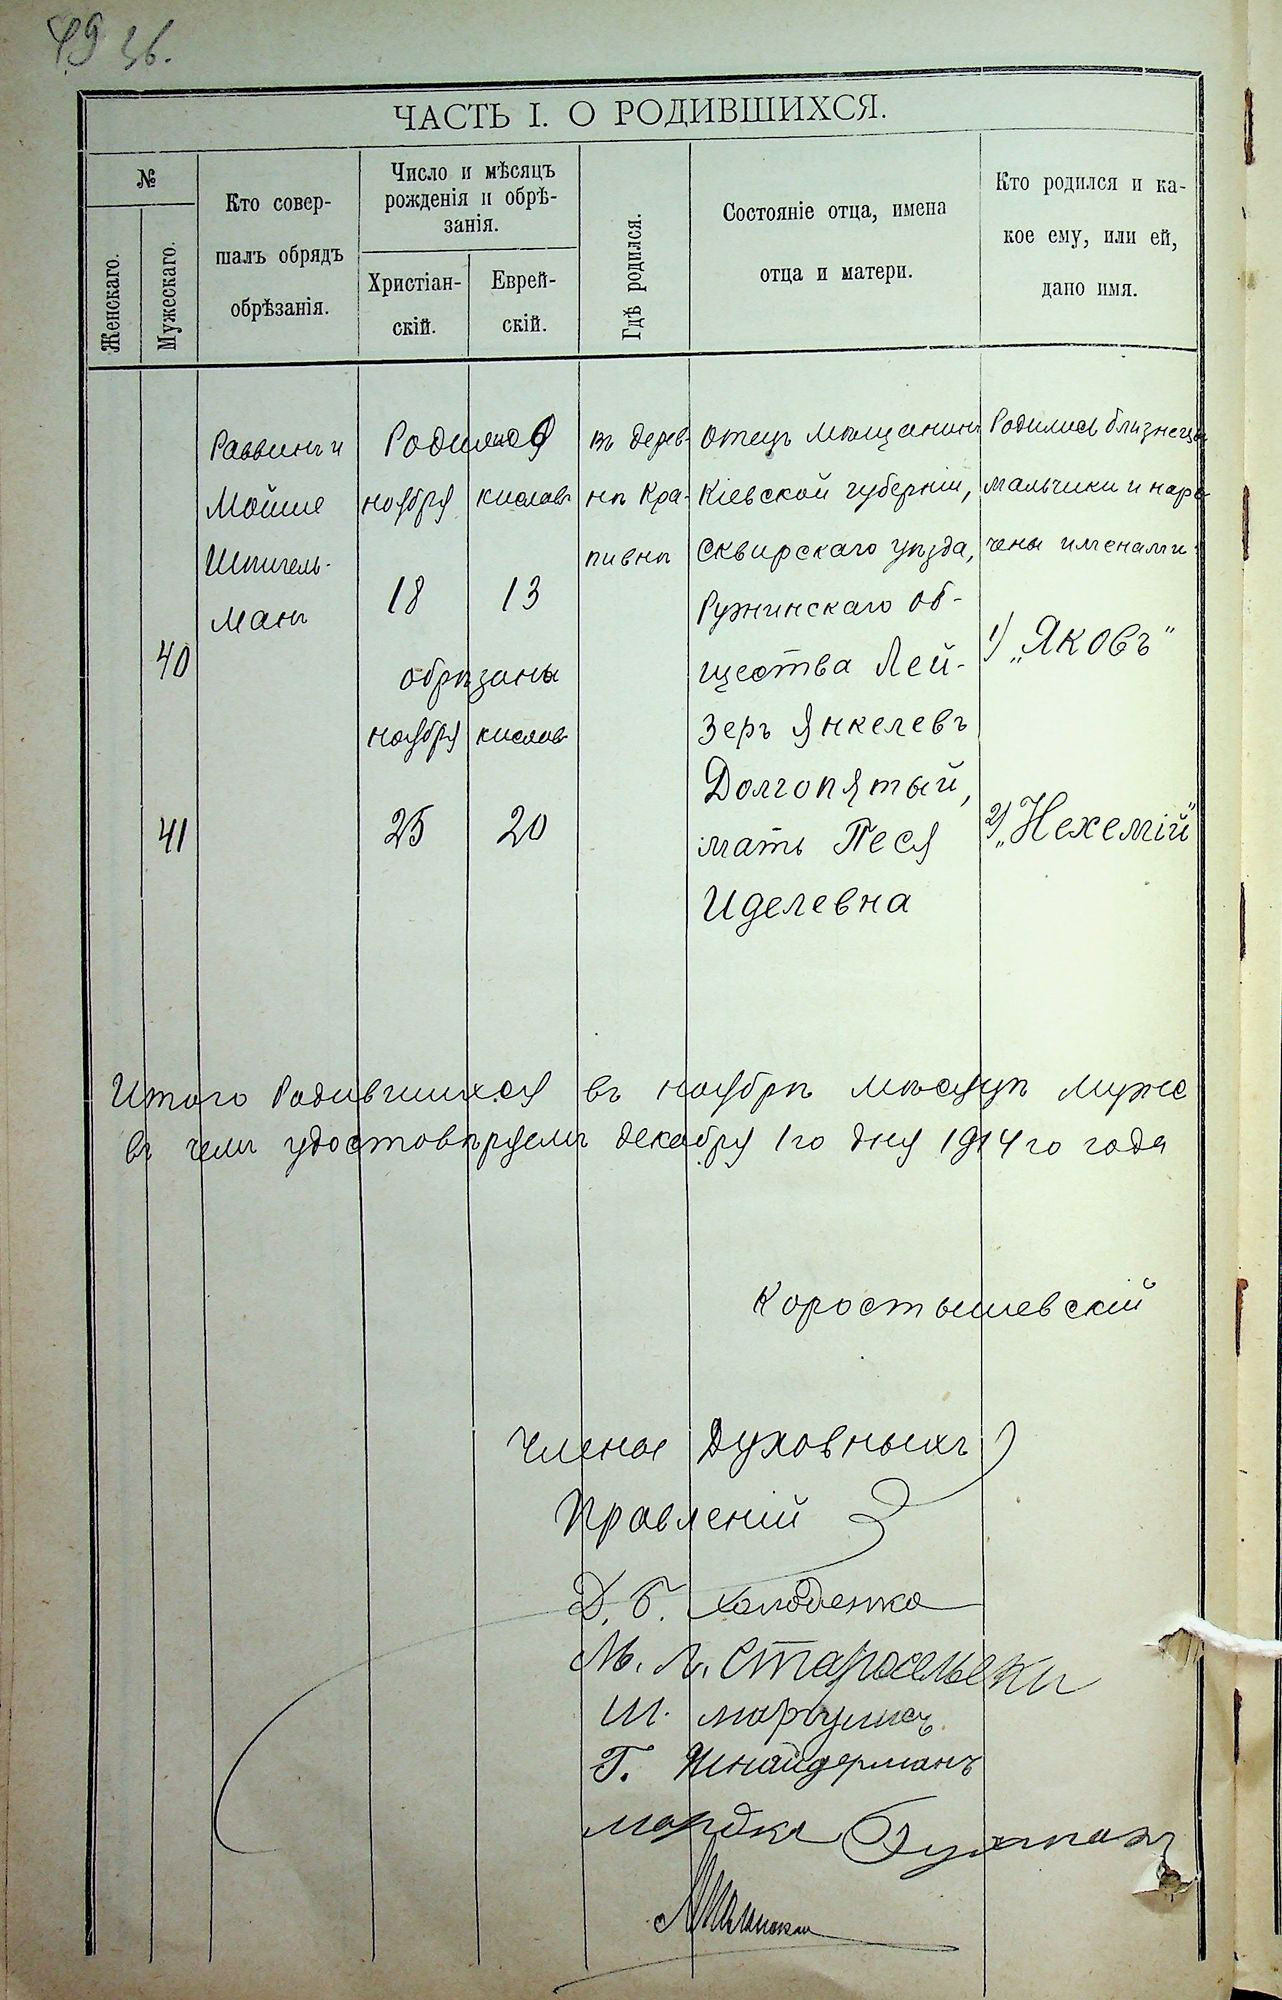 49 36.
ЧАСТЬ I. О РОДИВШИХСЯ.
№
Женскаго.
Мужескаго.
Кто совер-
шалъ обрядъ
обрѣзанія.
Число и мѣсяцъ
рожденія и обрѣ-
занія.
Христіан-
скій.
Еврей-
скій.
Гдѣ родился.
Состояніе отца, имена
отца и матери.
Кто родился и ка-
кое ему, или ей,
дано имя.
40
41
Раввинъ и
Мойше
Шпигель-
манъ
ноября
кислева
18
13
обрѣзаны
ноября
кислева
25
20
въ дерев-
нѣ Кра-
пивнѣ
Отецъ мѣщанинъ
Кіевской губерніи,
Сквирскаго уѣзда,
Ружинскаго об-
щества Лей-
зеръ Янкелевъ
Долгопятый,
мать Песя
Иделевна
Родились близнецы
мальчики и наре-
чены именами
1) „Яковъ"
2) „Нехемій"
Итого Родившихся въ ноябрѣ мѣсяцѣ муже
въ чемъ удостовѣряемъ декабря 1го дня 1914го года
Коростышевскій
Члены Духовныхъ
Правленій
Д. Б. Холоденко
М. Л. Старосельски
Ш. Маргулисъ
Г. Шнайдерманъ